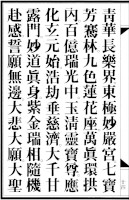 青華長樂界東極妙嚴宮七寶
芳騫林九色蓮花座萬眞環拱
內百億瑞光中玉清靈寶尊應
化玄元始浩劫垂慈濟大千甘
露門妙道眞身紫金瑞相隨機
赴感誓願無邊大悲大願大聖